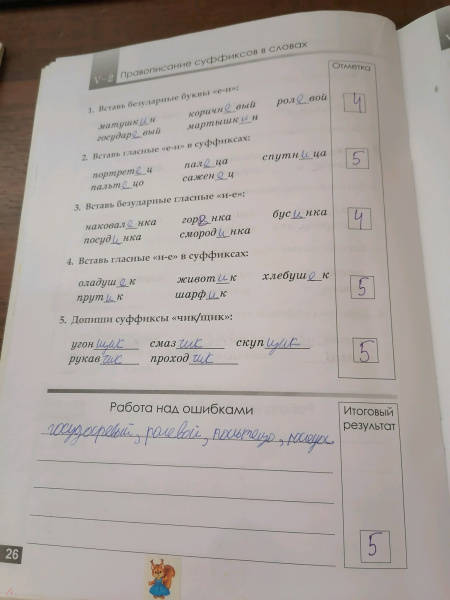 V-2 Правописание суффиксов в словах
Отметка
1. Вставь безударные буквы «е-и»:
матушкин коричневый ролевой
государевый мартышкин
4
2. Вставь гласные «е-и» в суффиксах:
портретец палеца спутница
пальтецо саженец
5
3. Вставь безударные гласные «и-е»:
наковаленка горенка бусинка
посудинка смородинка
4
4. Вставь гласные «и-е» в суффиксах:
оладушек животик хлебушек
прутик шарфик
5
5. Допиши суффиксы «чик/щик»:
угонщик смазчик скупщик
рукавчик проходчик
5
Работа над ошибками
Итоговый результат
государевый, ролевой, пальтецо,
5
26